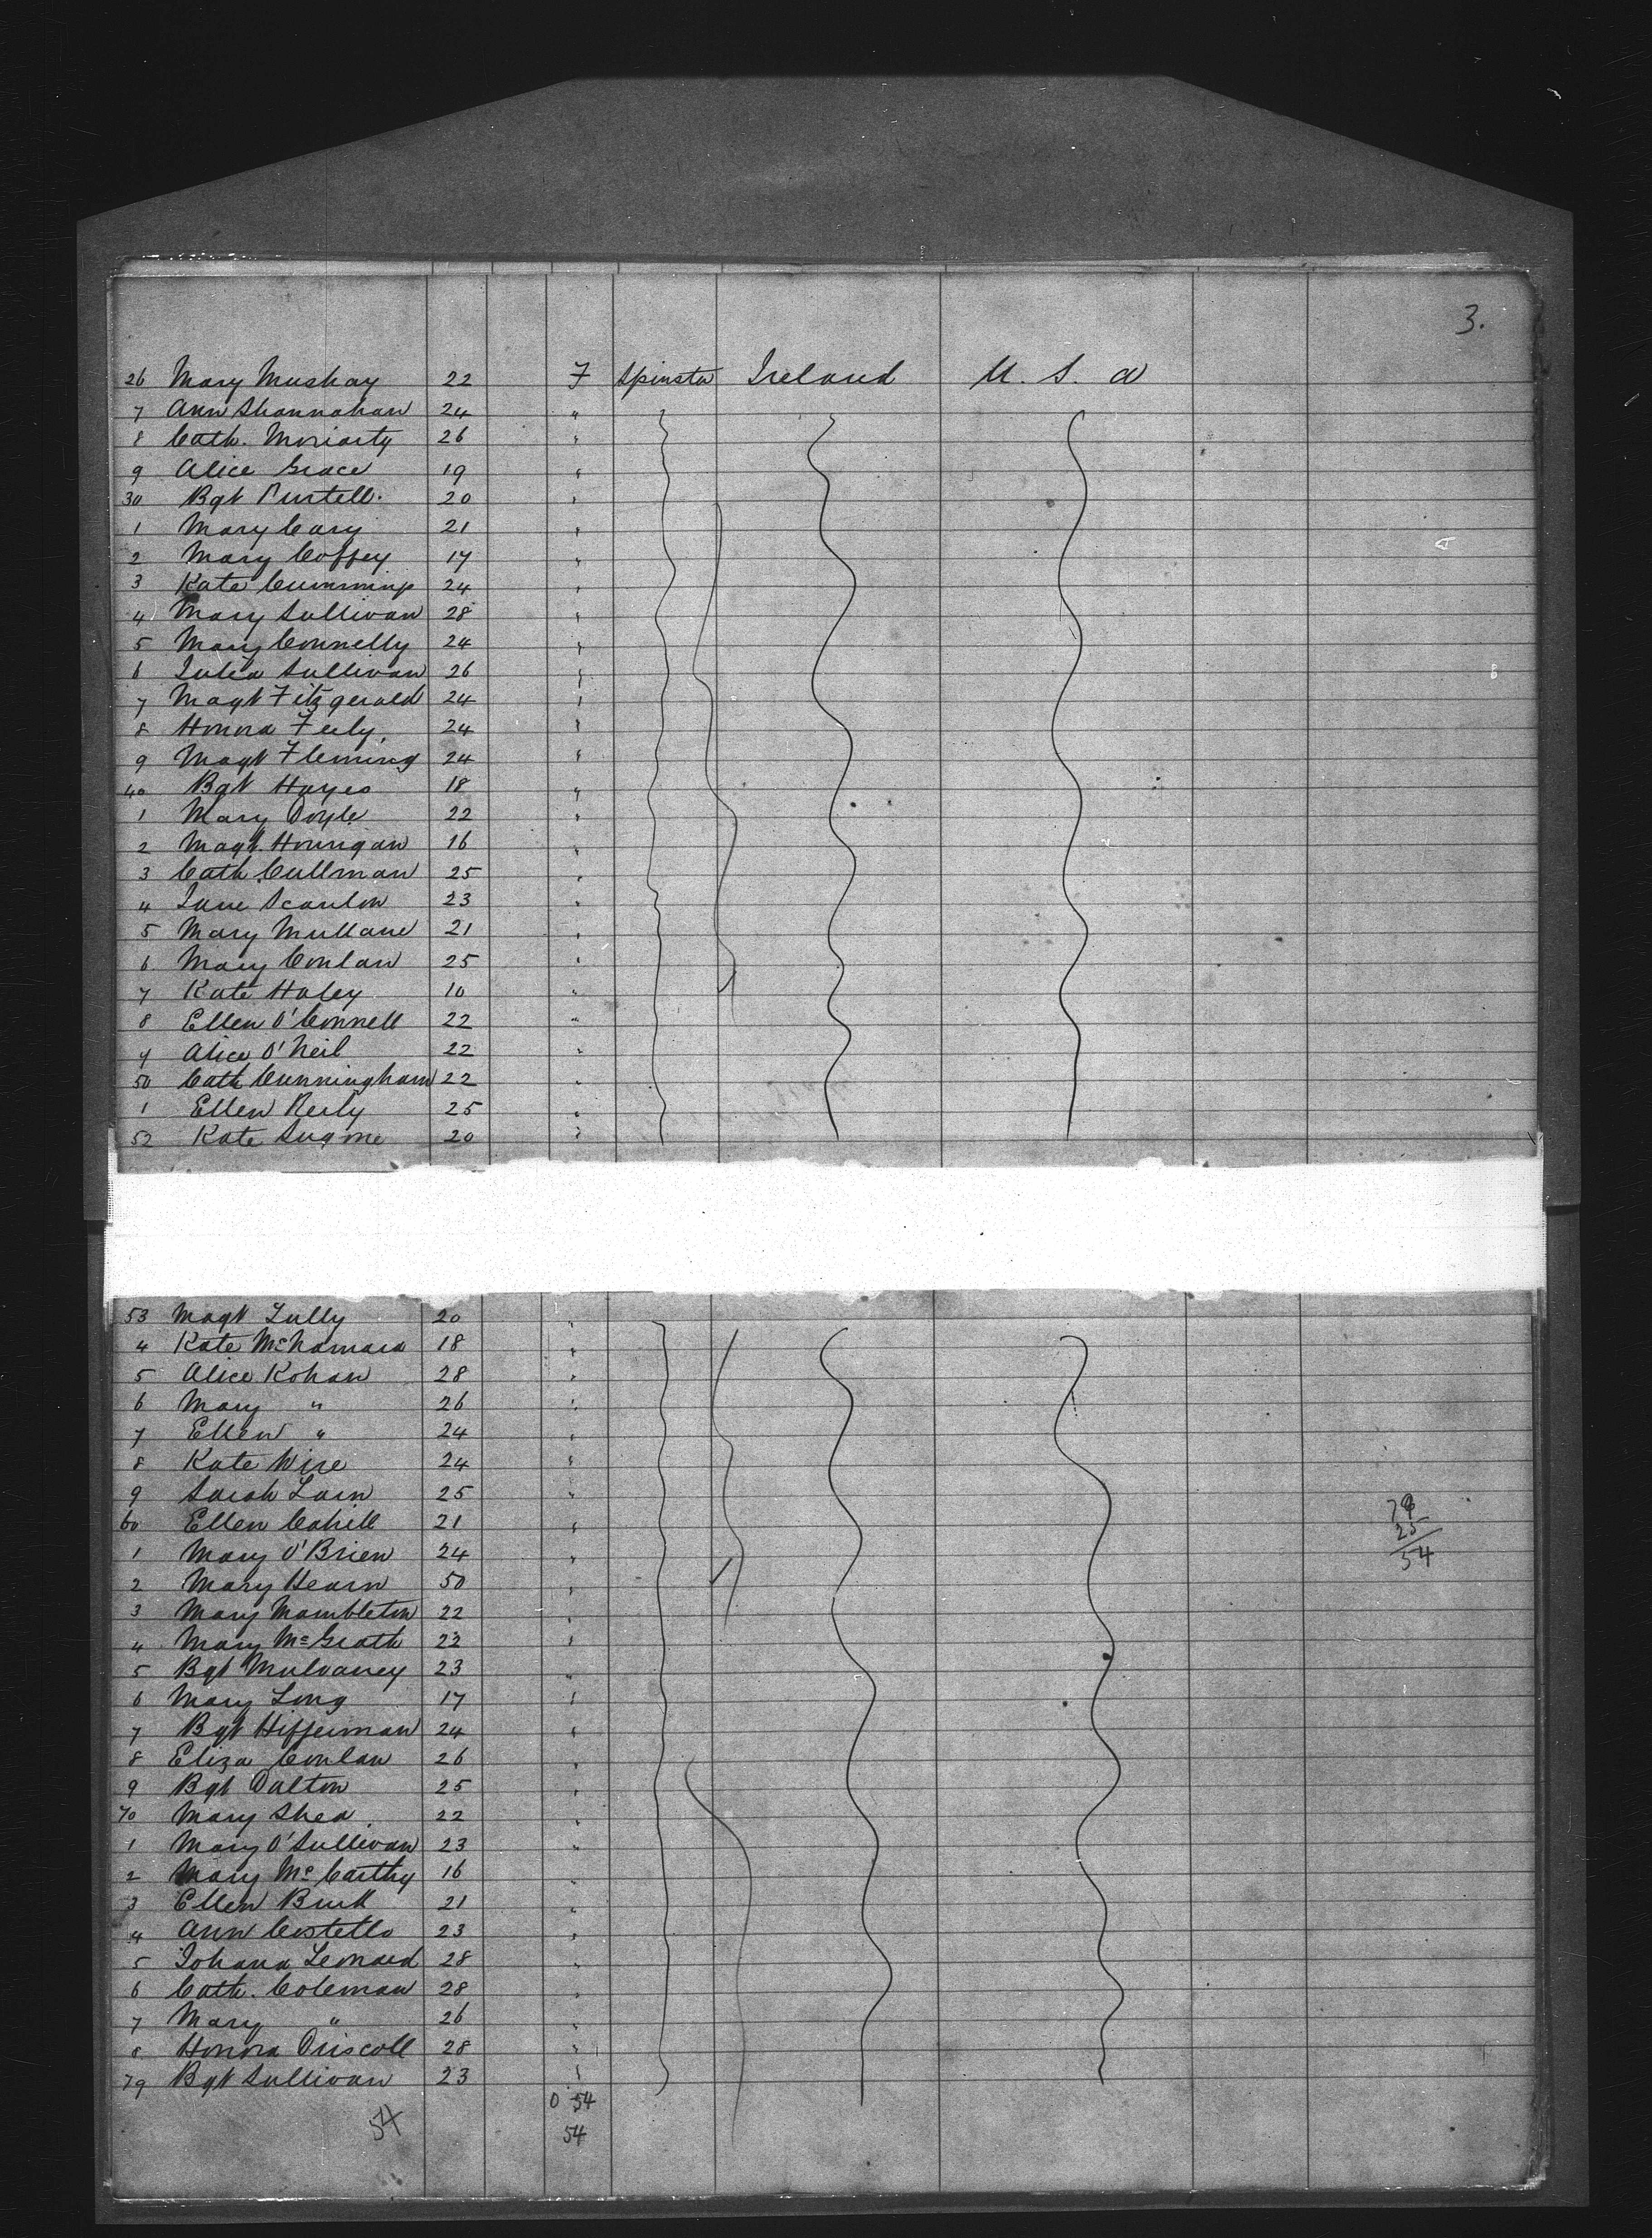 3.
26 Mary Mushay 22 F Spinster Ireland U. S. A
7 Ann Shannahan 24 "
8 Cath. Moriarty 26 "
9 Alice Grace 19 "
30 Bgt Purtell. 20 "
1 Mary Cary 21 "
2 Mary Coffey 17 "
3 Kate Cummins 24 "
4 Mary Sullivan 28 "
5 Mary Connelly 24 "
6 Julia Sullivan 26 "
7 Magt Fitzgerald 24 "
8 Honora Feely. 24 "
9 Magt Fleming 24 "
40 Bgt Hayes 18 "
1 Mary Doyle 22 "
2 Magt. Hourigan 16 "
3 Cath Cullinan 25 "
4 Jane Scanlon 23 "
5 Mary Mullane 21 "
6 Mary Conlan 25 "
7 Kate Haley 10 "
8 Ellen O'Connell 22 "
9 Alice O'Neil 22 "
50 Cath Cunningham 22 "
1 Ellen Reily 25 "
52 Kate 20 "
53 Magt Lully 20 "
4 Kate McNamara 18 "
5 Alice Kohan 28 "
6 Mary " 26 "
7 Ellen " 24 "
8 Kate Wire 24 "
9 Sarah Larn 25 "
60 Ellen Cahill 21 "
1 Mary O'Brien 24 "
2 Mary Hearn 50 "
3 Mary Mambleton 22 "
4 Mary McGrath 22 "
5 Bgt Mulvaney 23 "
6 Mary Long 17 "
7 Bgt Hiffernan 24 "
8 Eliza Conlan 26 "
9 Bgt Dalton 25 "
70 Mary Shea 22 "
1 Mary O'Sullivan 23 "
2 Mary McCarthy 16 "
3 Ellen Burk 21 "
4 Ann Costello 23 "
5 Johana Leonard 28 "
6 Cath. Coleman 28 "
7 Mary " 26 "
8 Honora Driscoll 28 "
79 Bgt Sullivan 23 "
79
25
54
0 54
54 54